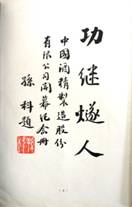 功继燧人
中國酒精製造股份
有限公司開幕紀念冊
孫科題